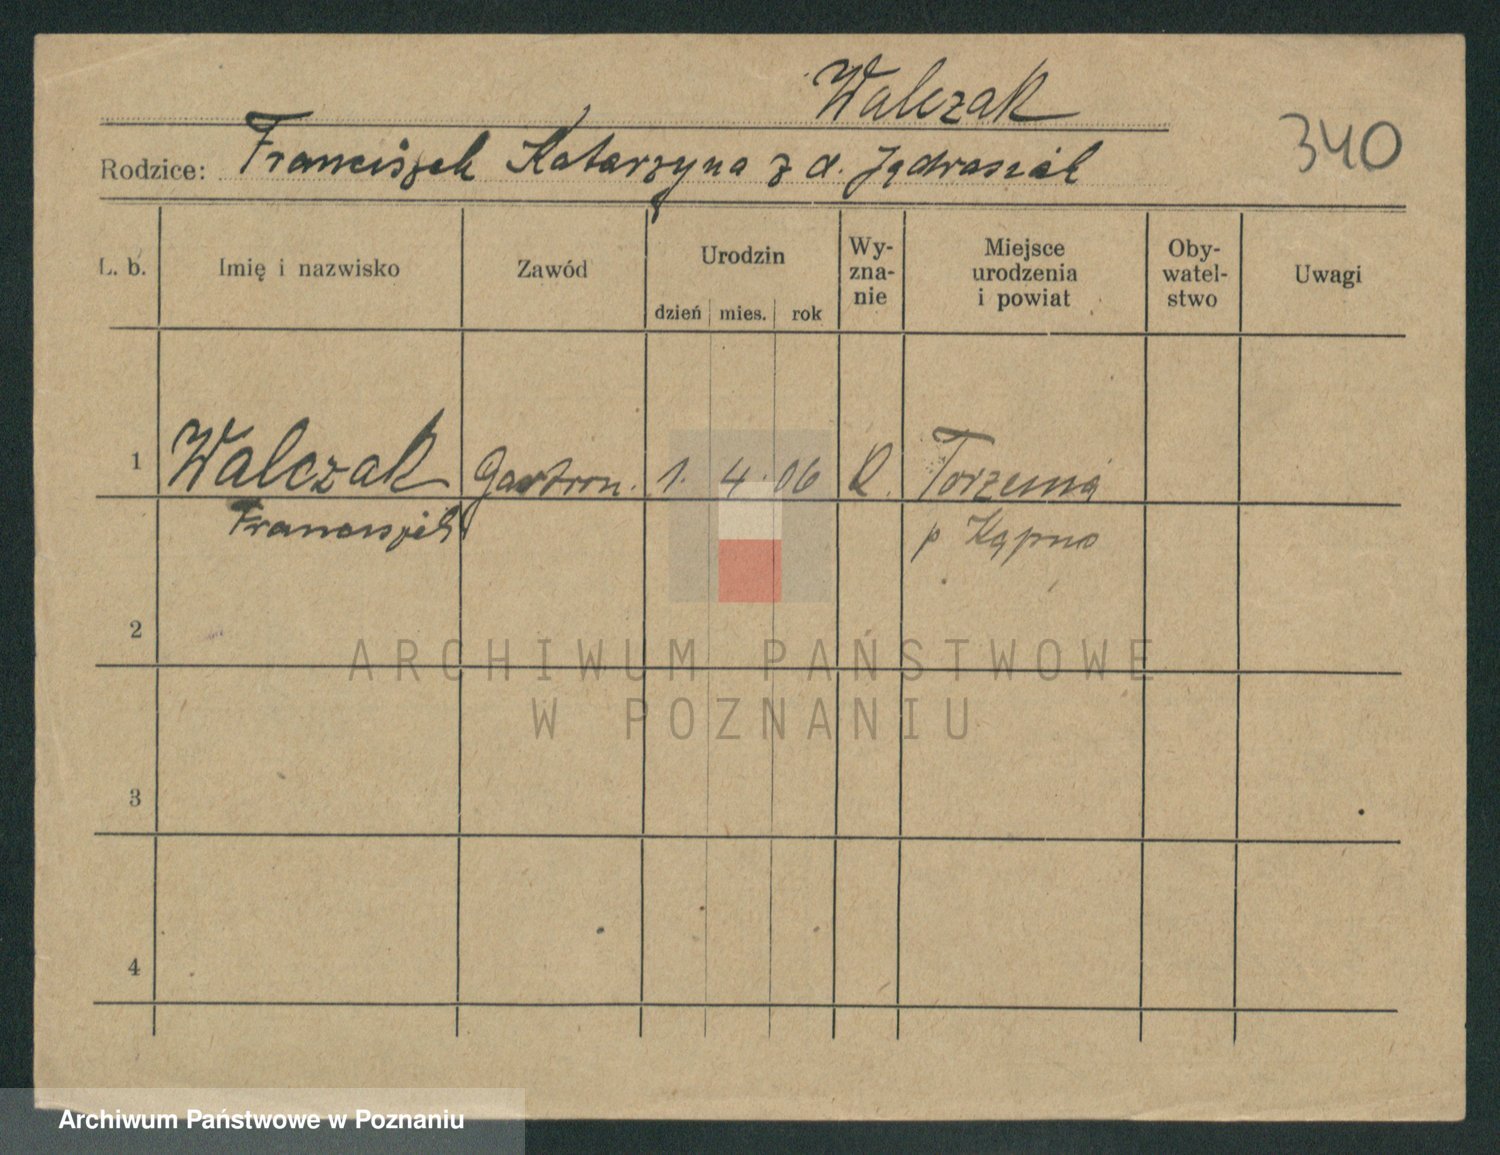 Walczak
Rodzice: Franciszek Katarzyna z d. Jędrasiak
340
L. b. Imię i nazwisko Zawód Urodzin Wy-zna-nie Miejsce urodzenia i powiat Oby-watel-stwo Uwagi
dzień mies. rok
1 Walczak Gastron. 1. 4. 06 R.
Franciszek p Kępno
2
ARCHIWUM PAŃSTWOWE
W POZNANIU
3
4
Archiwum Państwowe w Poznaniu